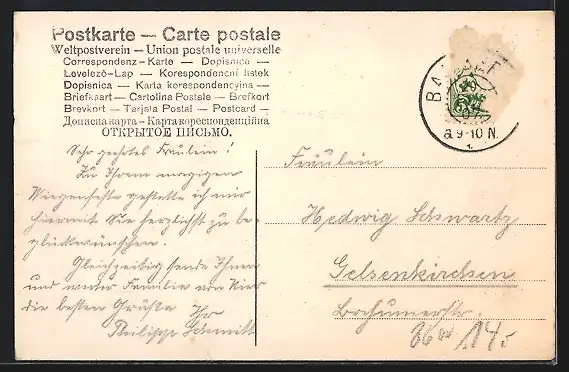 Postkarte — Carte postale
Weltpostverein — Union postale universelle
Correspondenz-Karte — Dopisnice —
Levelező-Lap — Korespondencni listek
Dopisnica — Karta korespondencyjna —
Briefkaart — Cartolina Postale — Brefkort
Brevkort — Tarjeta Postal — Postcard —
Дописна карта — Карта кореспонденційна
ОТКРЫТОЕ ПИСЬМО.
a 9-10 N.
Sehr geehrtes Fräulein!
Zu Ihrem morgigen
Wiegenfeste gestatte ich mir
hiermit Sie herzlichst zu be-
glückwünschen.
Gleichzeitig sende Ihnen
und werter Familie von hier
die besten Grüße
Ihr
Philipp Schmitt
Fräulein
Hedwig Schwartz
Gelsenkirchen
Bochumerstr.